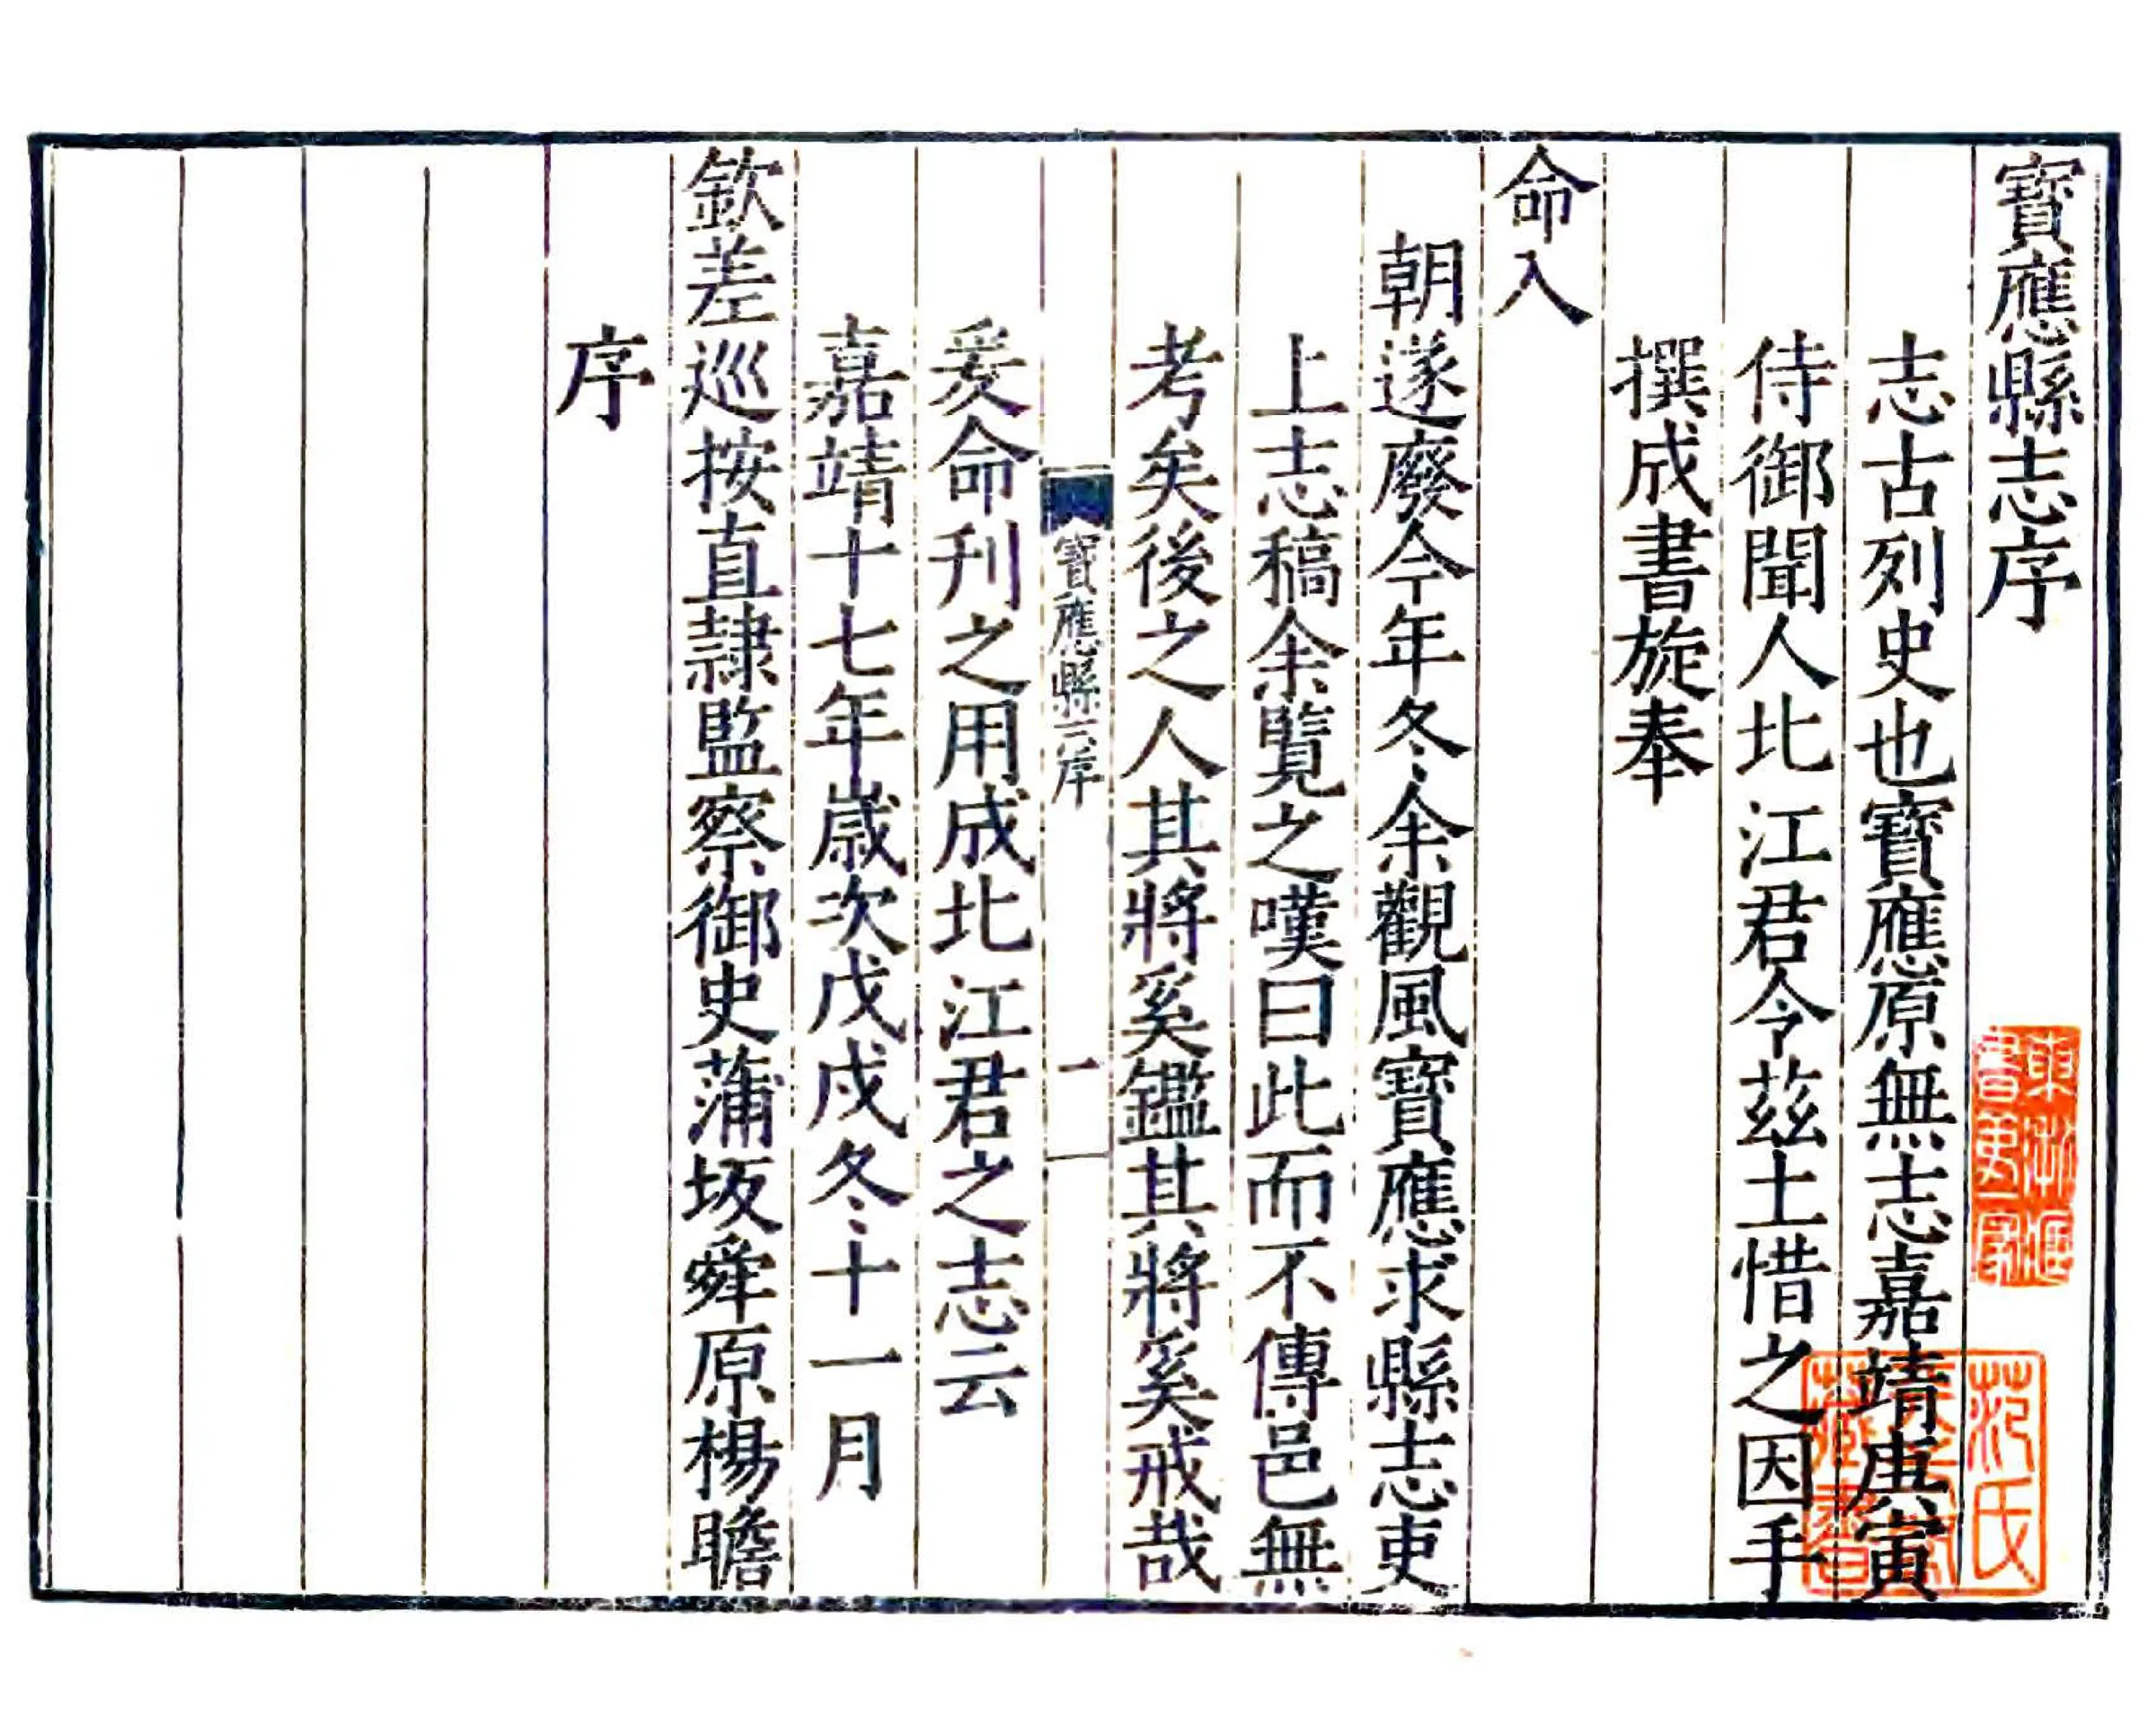 寶應縣志序
志古列史也寶應原無志嘉靖庚寅
侍御聞人北江君令茲土惜之因手
撰成書旋奉
命入
朝遂廢今年冬余觀風寶應求縣志吏
上志稿余覽之嘆曰此而不傳邑無
考矣後之人其將奚鑑其將奚戒哉
寶應縣志序
一
爰命刋之用成北江君之志云
嘉靖十七年歲次戊戌冬十一月
欽差巡按直隸監察御史蒲坂舜原楊瞻
序
范氏